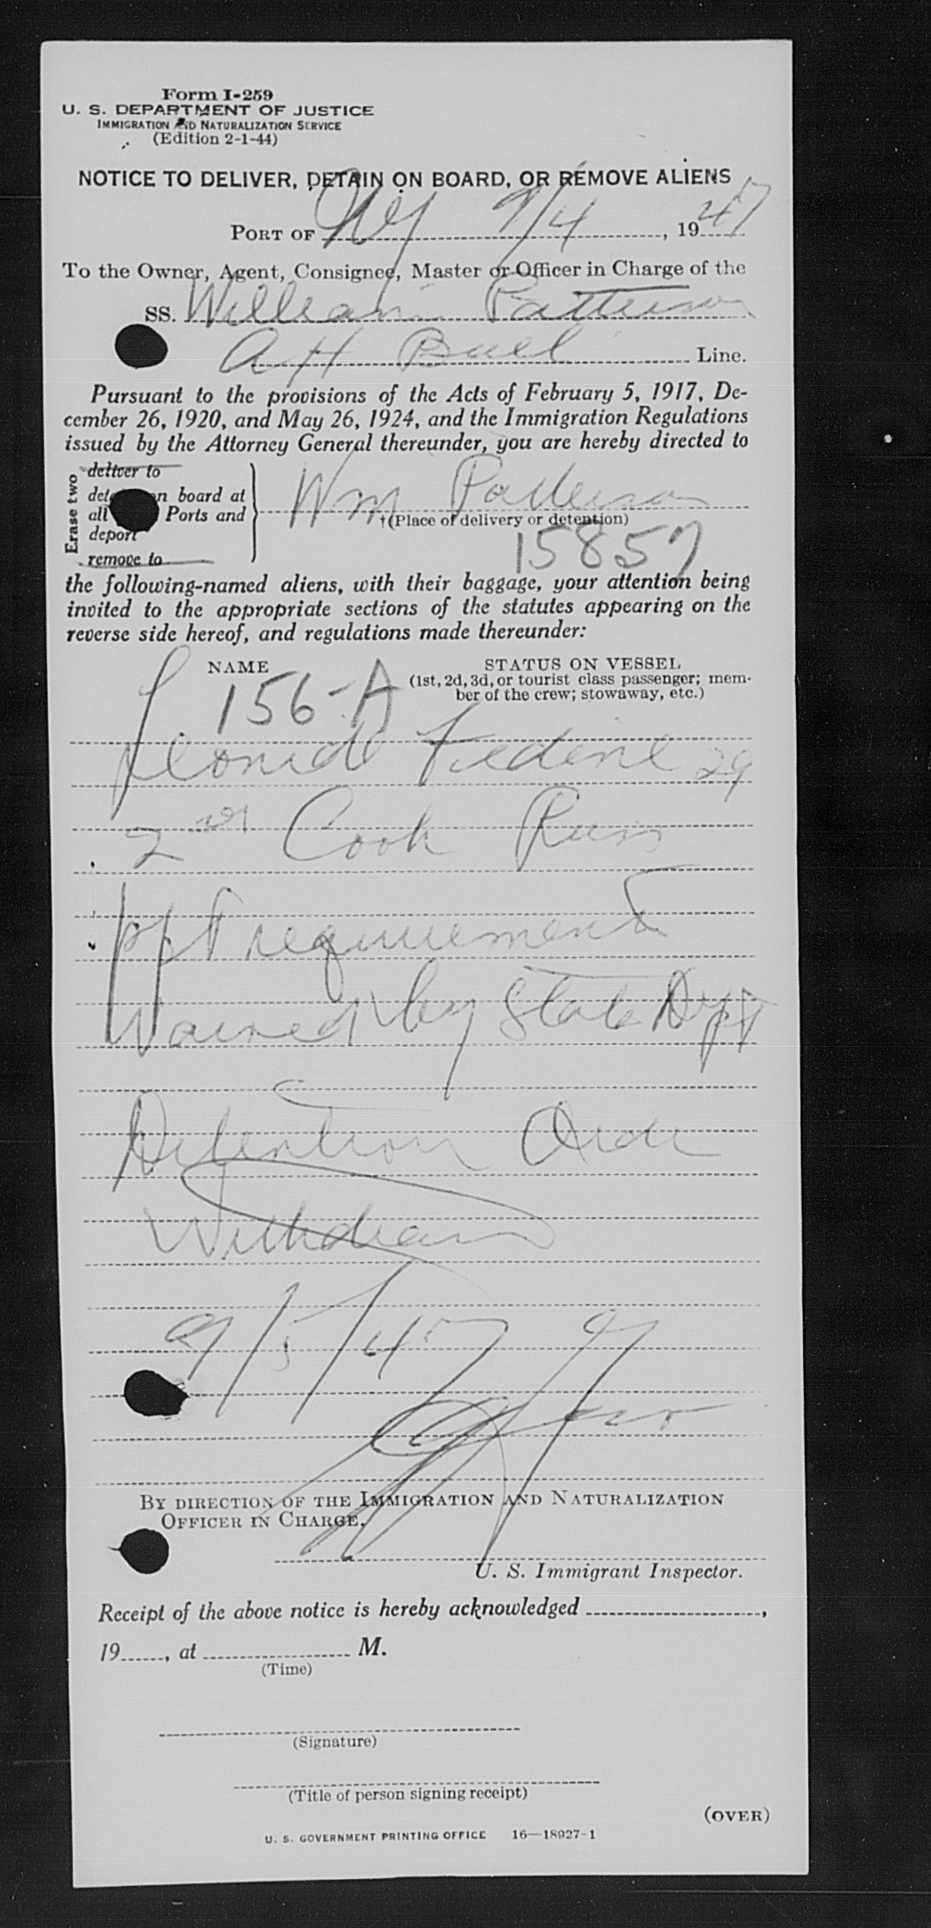 Form I-259
U. S. DEPARTMENT OF JUSTICE
IMMIGRATION AND NATURALIZATION SERVICE
(Edition 2-1-44)
NOTICE TO DELIVER, DETAIN ON BOARD, OR REMOVE ALIENS
PORT OF NY 9/4, 1947
To the Owner, Agent, Consignee, Master or Officer in Charge of the
SS. William Patterson
A H Bull Line.
Pursuant to the provisions of the Acts of February 5, 1917, De-
cember 26, 1920, and May 26, 1924, and the Immigration Regulations
issued by the Attorney General thereunder, you are hereby directed to
Erase two
deliver to
det n board at
all Ports and
deport
remove to
Wm Patterson
†(Place of delivery or detention)
15857
the following-named aliens, with their baggage, your attention being
invited to the appropriate sections of the statutes appearing on the
reverse side hereof, and regulations made thereunder:
NAME
STATUS ON VESSEL
(1st, 2d, 3d, or tourist class passenger; mem-
ber of the crew; stowaway, etc.)
156-A
Leonid 29
2 Cook Russ
ppt requirement
Waived by State Dept
Detention Order
Withdrawn
9/5/47
BY DIRECTION OF THE IMMIGRATION AND NATURALIZATION
OFFICER IN CHARGE.
U. S. Immigrant Inspector.
Receipt of the above notice is hereby acknowledged ,
19 , at M.
(Time)
(Signature)
(Title of person signing receipt)
(OVER)
U. S. GOVERNMENT PRINTING OFFICE 16—18927-1